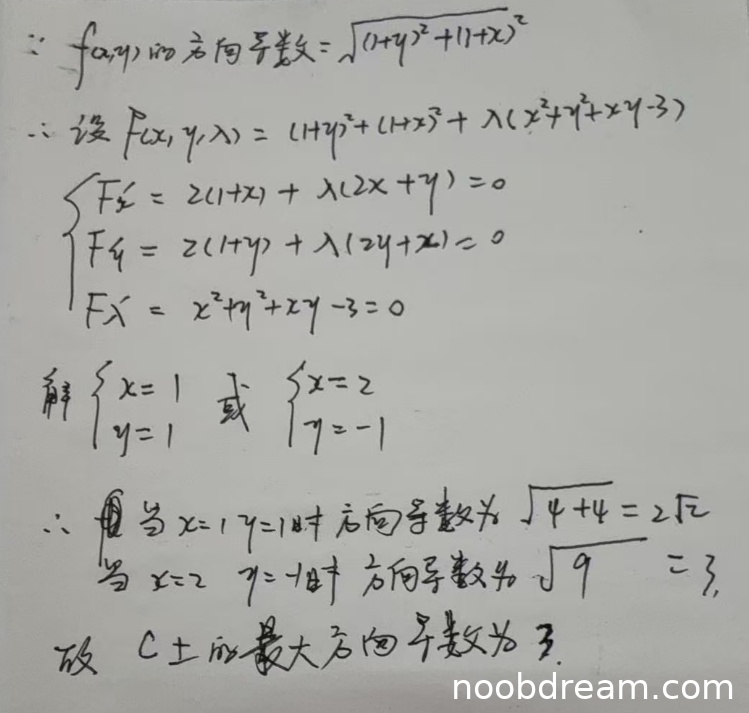 ∵ f(x,y)的方向导数=√(1+y)²+(1+x)²
∴ 设F(x,y,λ)=(1+y)²+(1+x)²+λ(x²+y²+xy-3)
Fx′=2(1+x)+λ(2x+y)=0
Fy′=2(1+y)+λ(2y+x)=0
Fλ′=x²+y²+xy-3=0
解 { x=1 y=1 或 { x=2 y=-1
∴ 当x=1 y=1时方向导数为√4+4=2√2
当x=2 y=-1时方向导数为√9=3.
故C上的最大方向导数为3.
noobdream.com